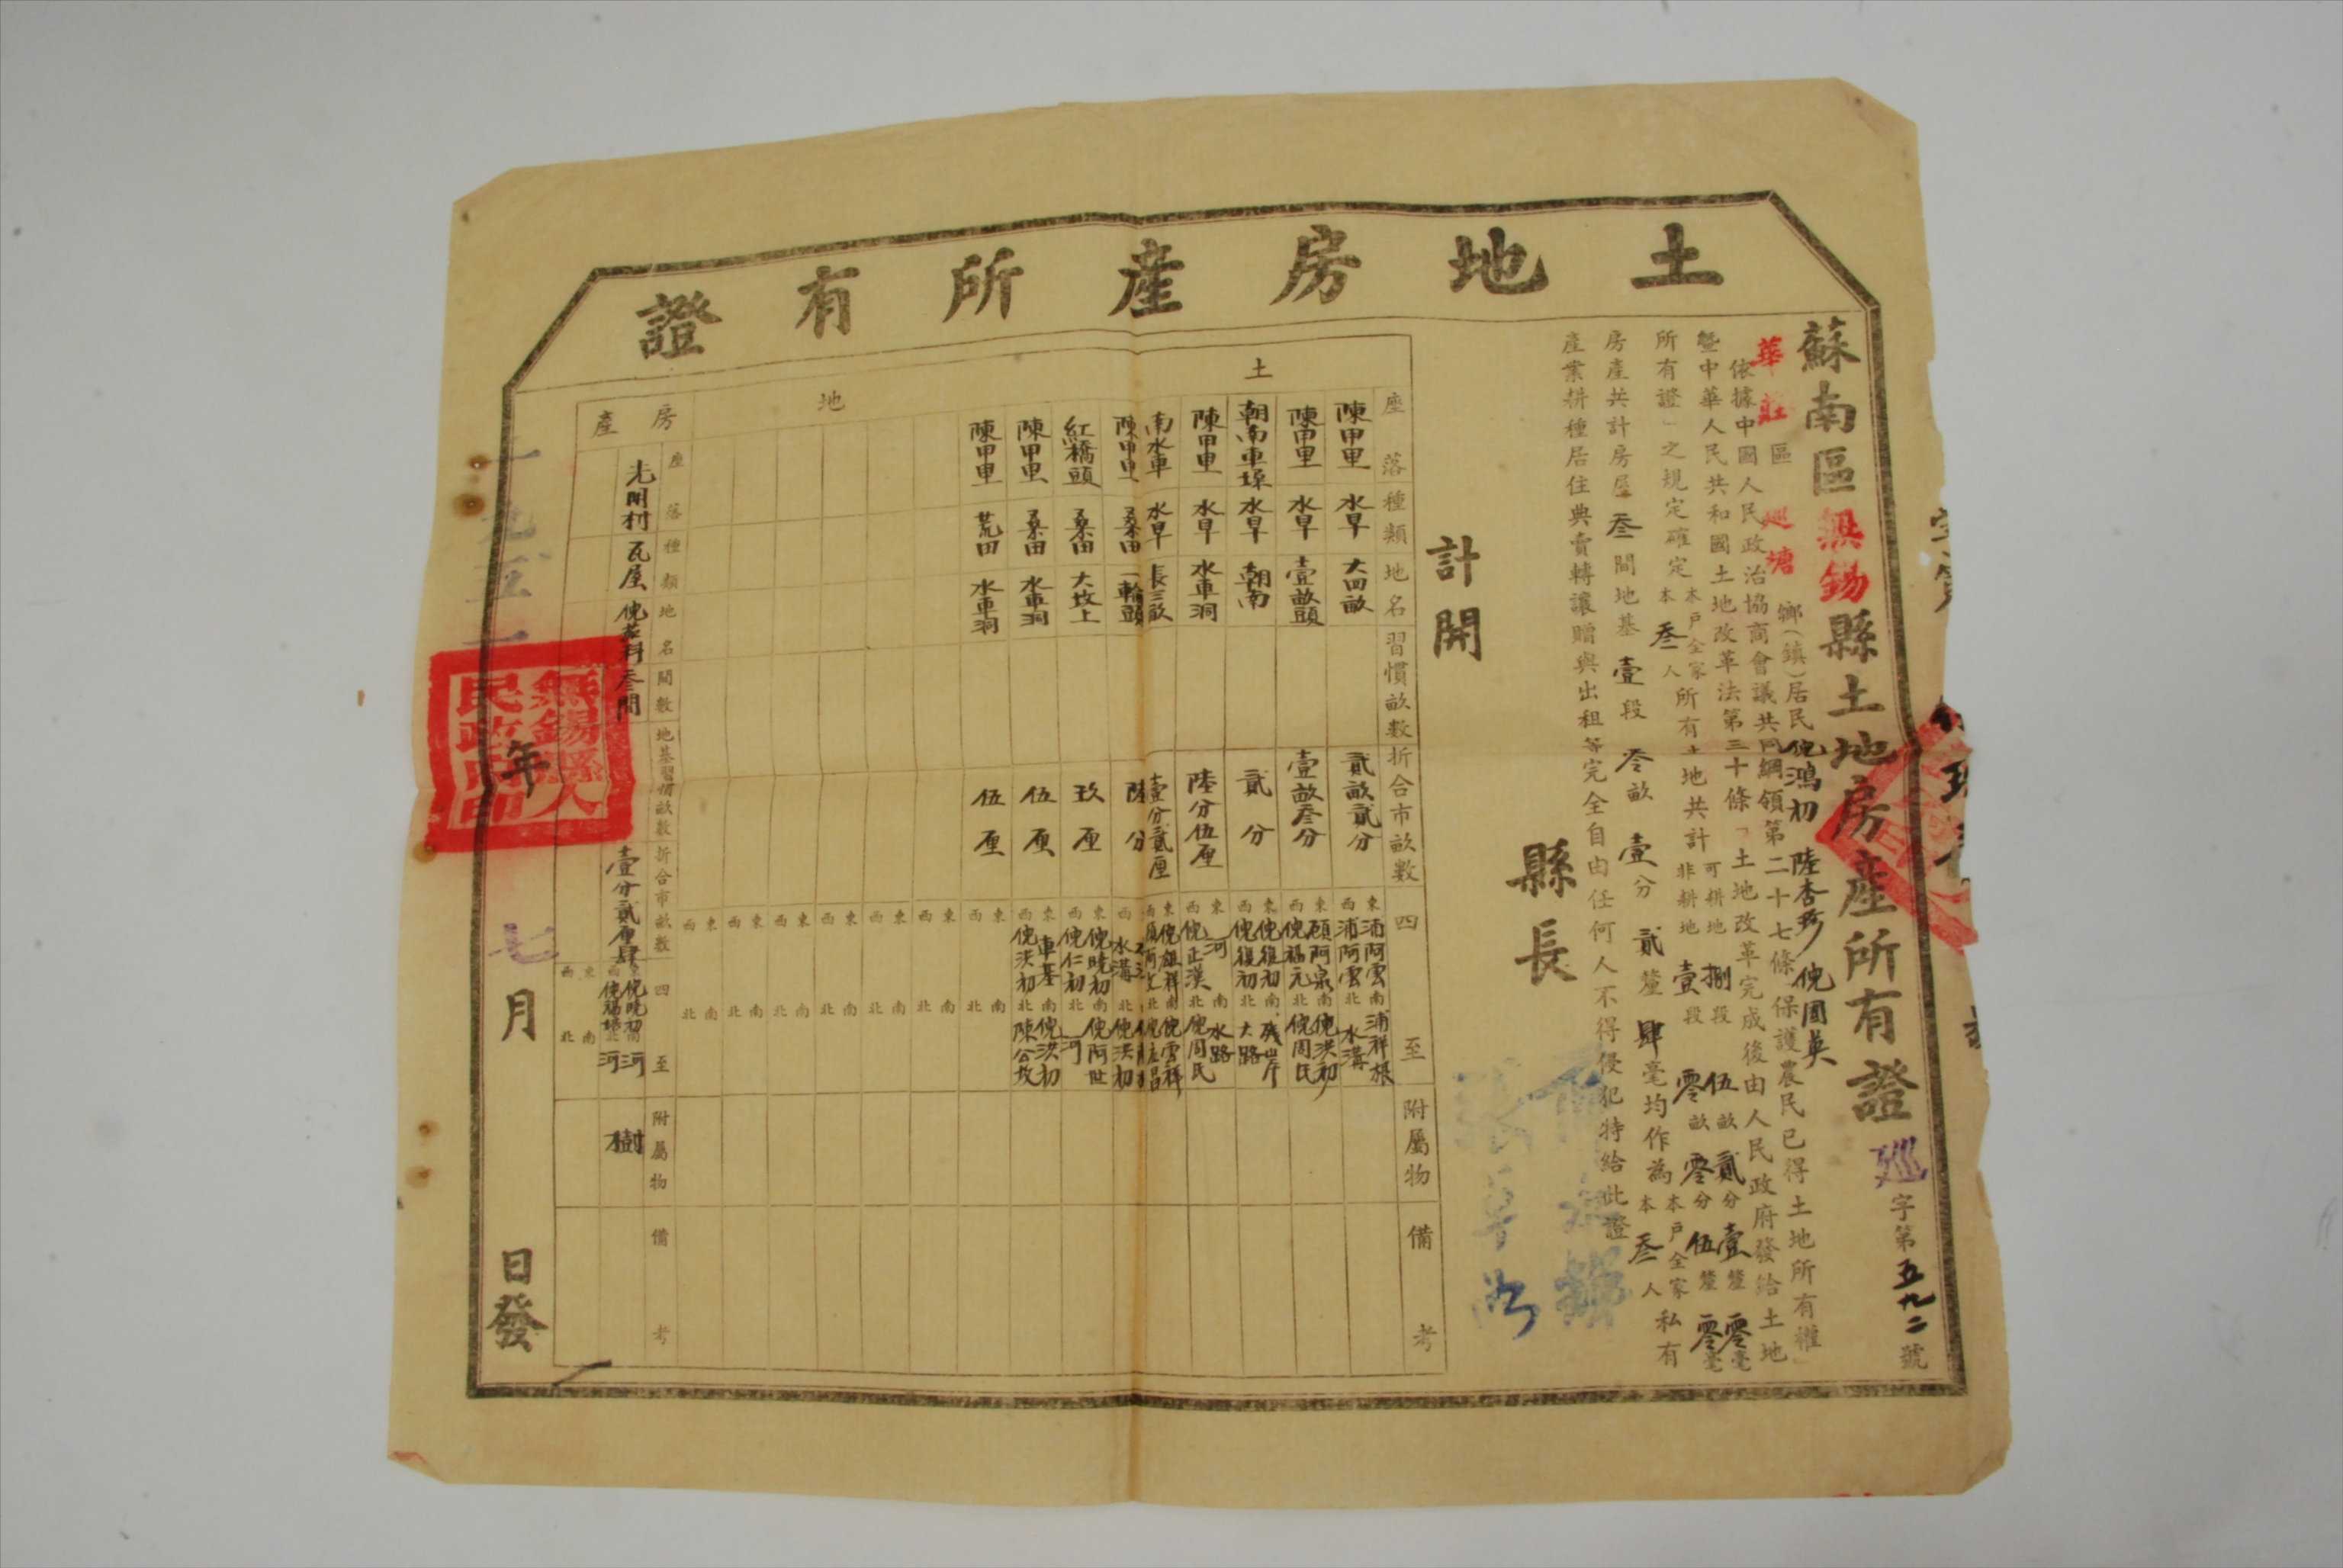 土地房產所有證
蘇南區無錫縣土地房產所有證 巡字第五九二號
華莊區巡塘鄉(鎮)居民倪鴻初 陸杏珍 倪國英
依據中國人民政治協商會議共同綱領第二十七條「保護農民已得土地所有權」
暨中華人民共和國土地改革法第三十條「土地改革完成後由人民政府發給土地
所有證」之規定確定本戶全家本叁人所有土地共計可耕地捌段伍畝貳分壹釐零毫非耕地壹段零畝零分伍釐零毫
房產共計房屋叁間地基壹段零畝壹分貳釐肆毫均作為本戶全家本叁人私有
產業耕種居住典賣轉讓贈與出租等完全自由任何人不得侵犯特給此證
縣長
計開
土地
座落 種類 地名 習慣畝數 折合市畝數 四至 附屬物 備考
陳甲里 水旱 大四畝 貳畝貳分 東浦阿雲 西浦阿雲 南浦祥根 北水溝
陳甲里 水旱 壹畝頭 壹畝叁分 東顧阿泉 西倪福元 南倪洪初 北倪周氏
朝南車埠 水旱 朝南 貳分 東倪復初 西倪復初 南墘岸 北大路
陳甲里 水旱 水車洞 陸分伍厘 東河 西倪正漢 南水路 北倪周氏
南水車 水旱 長三畝 壹分貳厘 東倪組祥 西 南倪雲祥 北
陳甲里 桑田 一輪頭 陸分 東 西水溝 南 北倪洪初
紅橋頭 桑田 大坟上 玖厘 東倪曉初 西倪仁初 南倪阿世 北河
陳甲里 桑田 水車洞 伍厘 東車基 西倪洪初 南倪洪初 北陳公坟
陳甲里 荒田 水車洞 伍厘 東 西 南 北
東 西 南 北
東 西 南 北
東 西 南 北
東 西 南 北
東 西 南 北
東 西 南 北
房產
座落 種類 地名 間數 地基習慣畝數 折合市畝數 四至 附屬物 備考
光明村 瓦屋 叁間 壹分貳厘肆 東倪曉初 西 南河 北河 樹
東 西 南 北
一九五一年七月 日發
無錫縣人民政府印